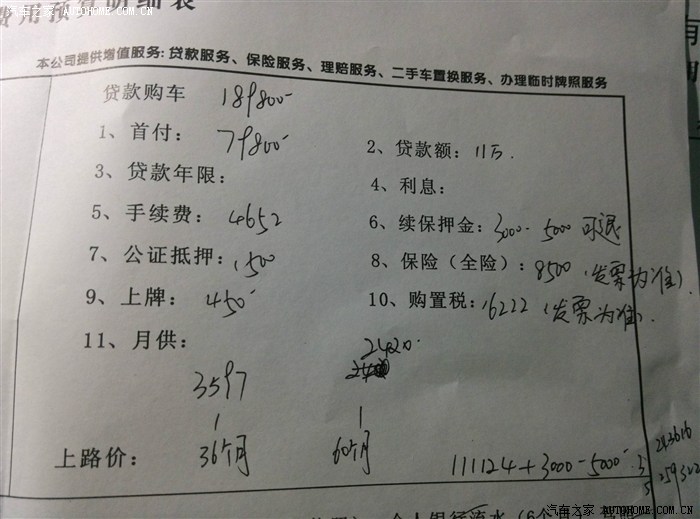 汽车之家 AUTOHOME.COM.CN
费用预算明细表
本公司提供增值服务: 贷款服务、保险服务、理赔服务、二手车置换服务、办理临时牌照服务
贷款购车 189800
1、首付: 79800 2、贷款额: 11万.
3、贷款年限: 4、利息:
5、手续费: 4652 6、续保押金: 3000-5000 可退
7、公证抵押: 1500 8、保险(全险): 8500 (发票为准).
9、上牌: 450 10、购置税: 16222 (发票为准).
11、月供: 2420.
3597
上路价: 36个月 60个月 111124+3000-5000
3 243616
5 259322
个人银行流水(6个月)
汽车之家 AUTOHOME.COM.CN